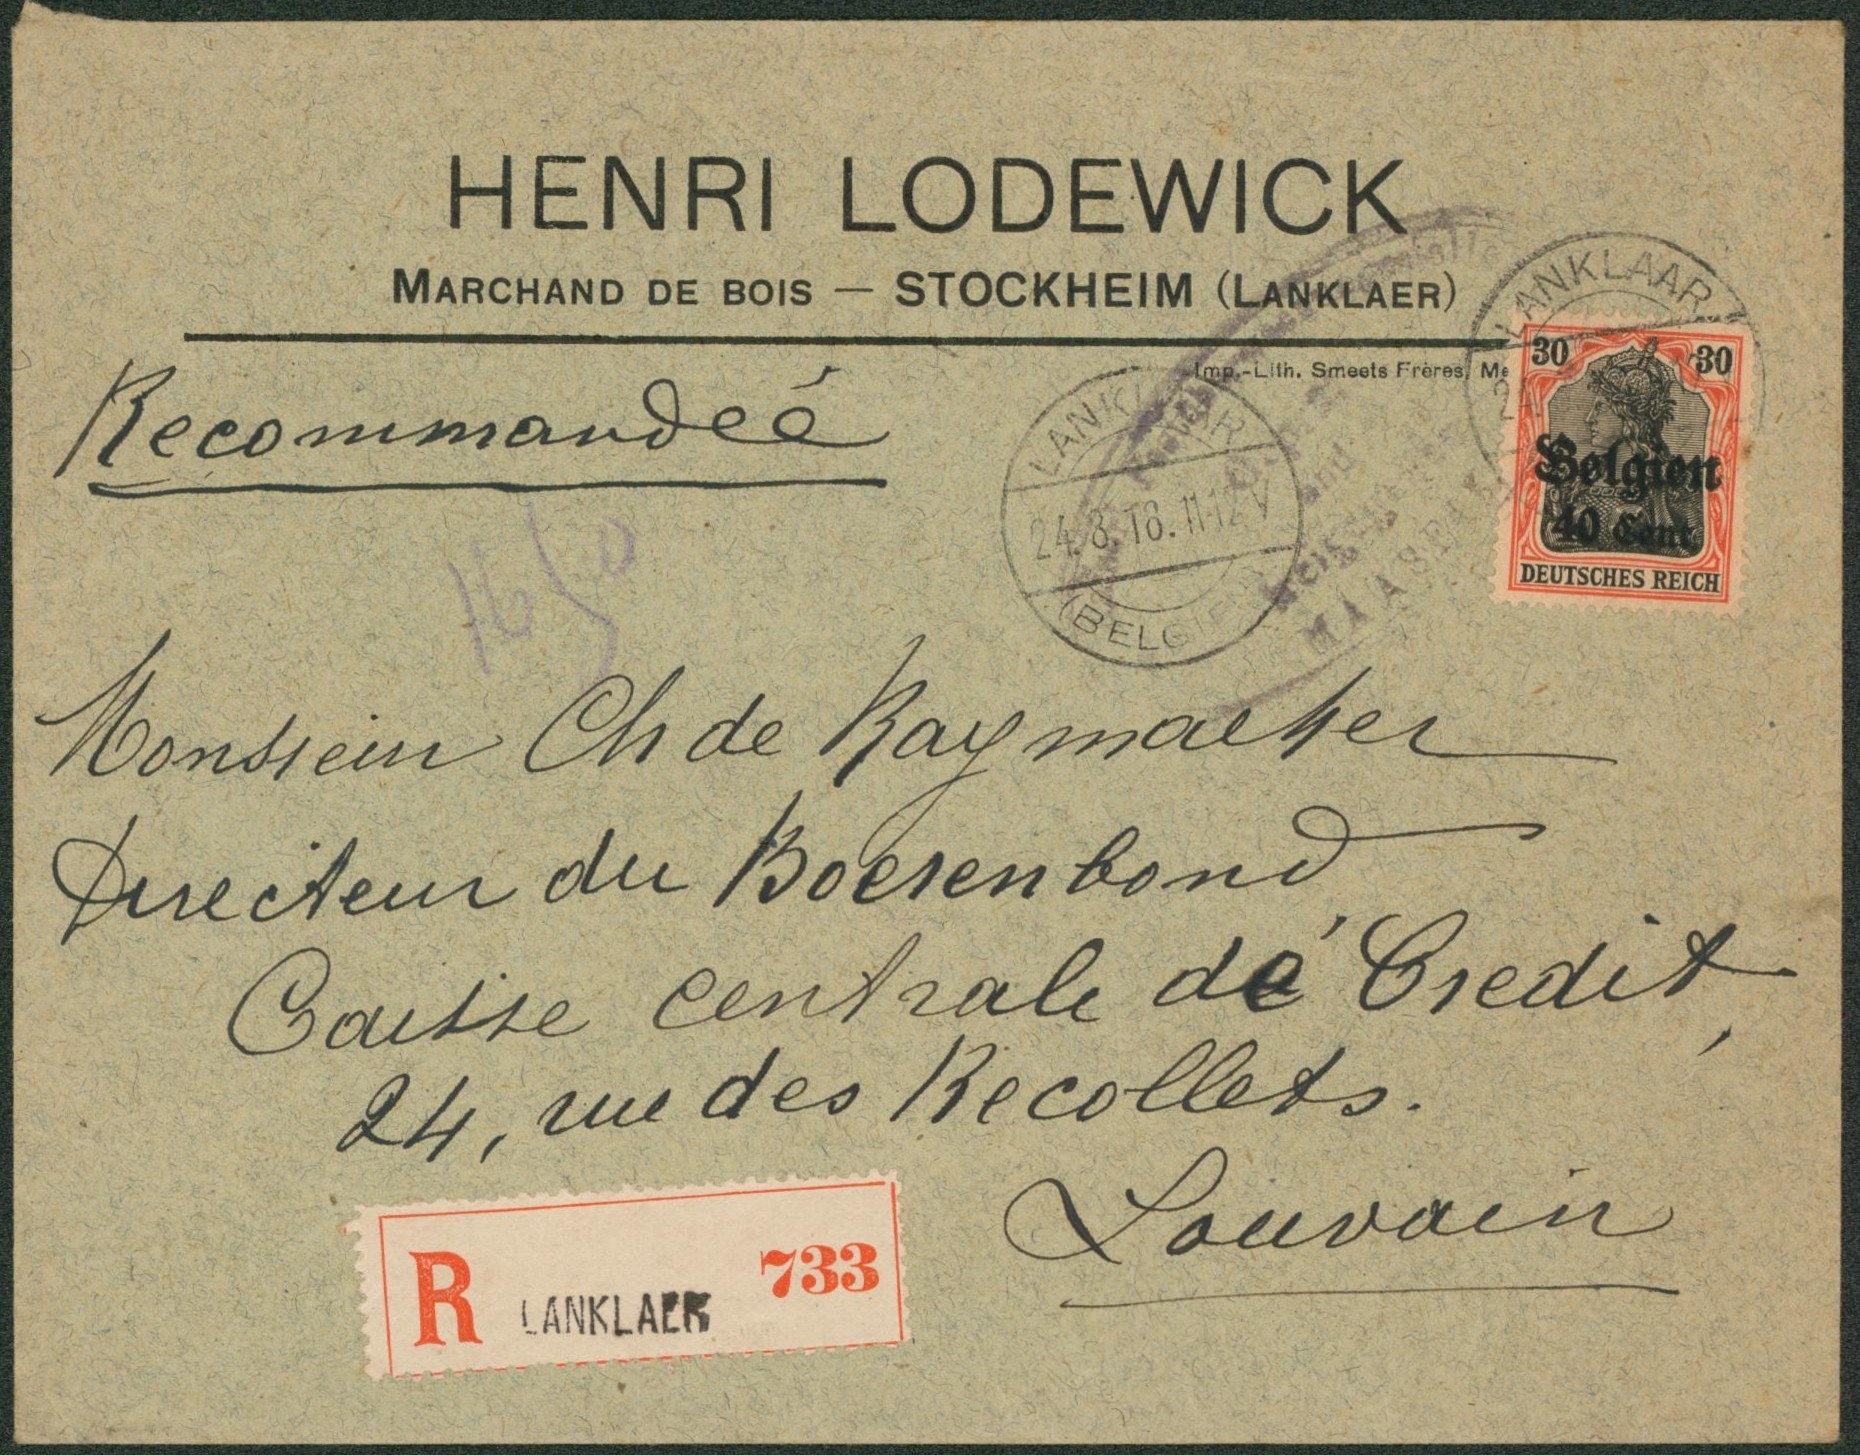 HENRI LODEWICK
MARCHAND DE BOIS — STOCKHEIM (LANKLAER)
Imp.-Lith. Smeets Frères, Me
Recommandéé
LANKLAAR
30 30
Belgien
40 Cent
DEUTSCHES REICH
LANKLAAR
24.8.18.11-12 V
(BELGIEN)
MAASEIK
Monsieur Ch de Raymaeker
Directeur du Boerenbond
Caisse centrale dé Credit,
24, rue des Recollets.
Louvain
R LANKLAER 733